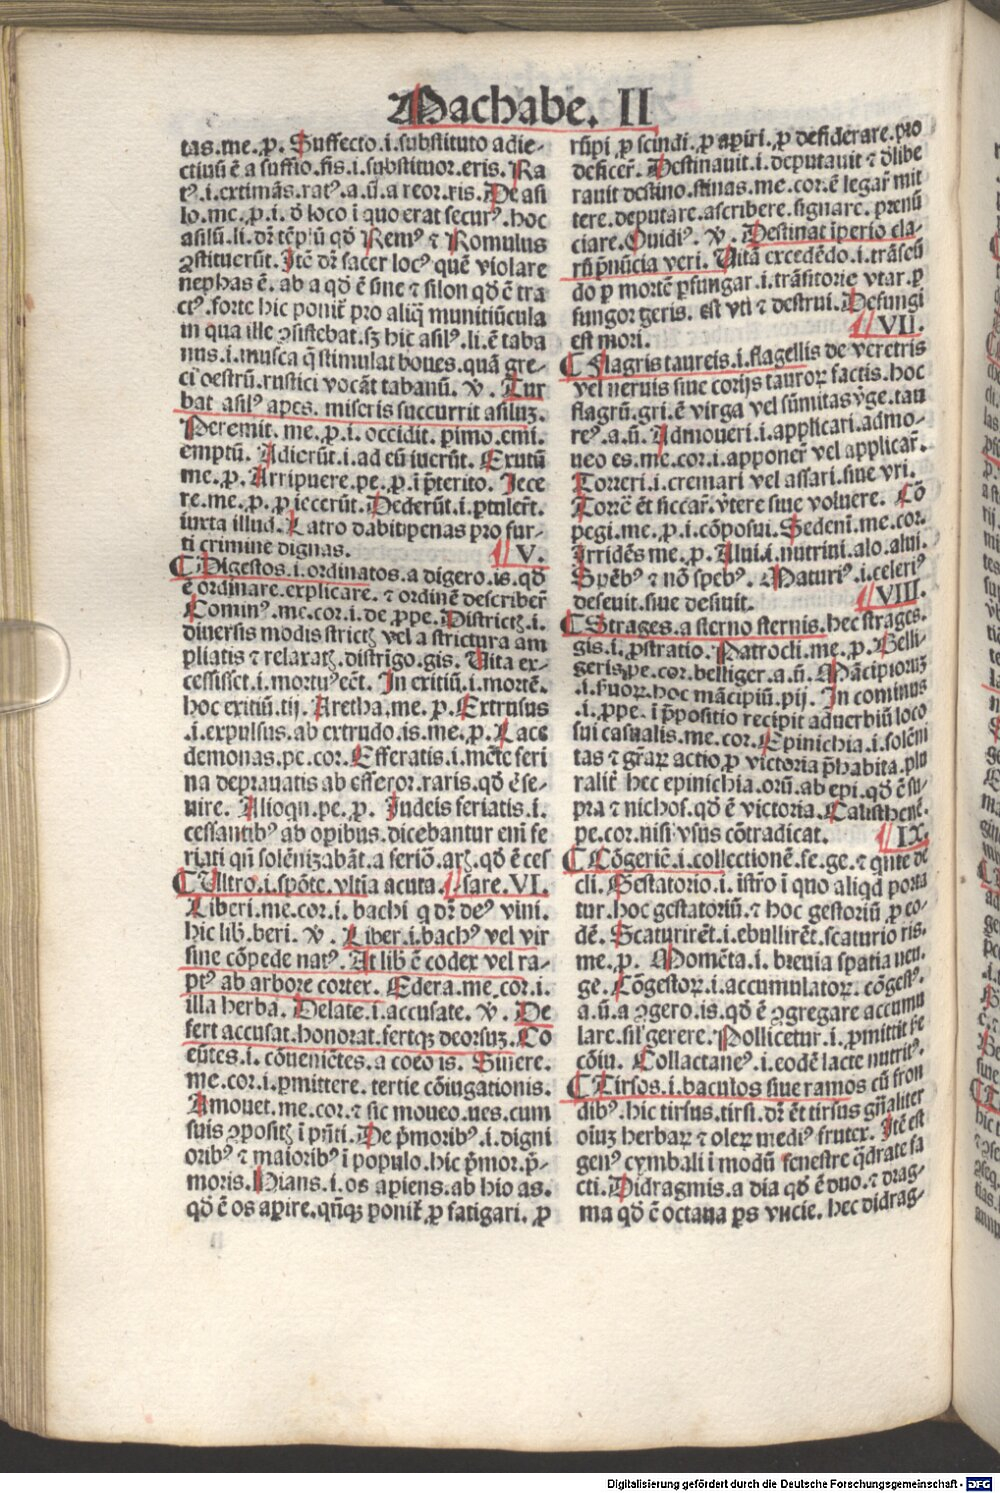 Machabe. II
tas.me.ꝓ. Suffecto.i.substituto adie-
ctiuū ē a suffio.fis.i.substituor.eris. Ra
tꝰ.i.extimās.ratꝰ.a.ū.a reor.ris. De asi
lo.me.ꝓ.i.đ loco ī quo erat securꝰ.hoc
asilū.li.dr̄ tēplū qđ Remꝰ ⁊ Romulus
ꝯstituerūt. Itē dr̄ sacer locꝰ quē violare
nephas ē. ab a qđ ē sine ⁊ silon qđ ē tra
ctꝰ.forte hic ponit̄ pro aliq̄ munitiūcula
in qua ille ꝯsistebat.sꝫ hic asilꝰ.li.ē taba
nus.i.musca q̄ stimulat boues.quā gre-
ci oestrū.rustici vocāt tabanū. v̄. Tur
bat asilꝰ apes. miseris succurrit asiluꝫ.
Peremit. me.ꝓ.i.occidit. pimo.emi.
emptū. Adierūt.i.ad eū iuerūt. Exutū
me.ꝓ. Arripuere.pe.ꝓ.i p̄terito. Iece
re.me.ꝓ. ꝓiecerūt. Dederūt.i.ptulert̄.
iuxta illud. Latro dabit penas pro fur-
ti crimine dignas. V.
Digestos.i.ordinatos.a digero.is.qđ
ē ordinare.explicare. ⁊ ordinē describer̄
Cominꝰ.me.cor.i.de ꝓpe. Districtꝫ.i.
diuersis modis strictꝫ vel a strictura am
pliatis ⁊ relaxatꝫ.distrīgo.gis. Uita ex-
cessisset.i.mortuꝰ eēt. In exitiū.i.mortē.
hoc exitiū.tij. Aretha.me. ꝓ. Extrusus
.i.expulsus.ab extrudo.is.me.ꝓ. Lace
demonas.pe.cor. Efferatis.i.mēte feri
na deprauatis ab efferor.raris.qđ ē se-
uire. Alioqn.pe.ꝓ. Iudeis feriatis.i.
cessantibꝰ ab opibus.dicebantur enī fe
riati qn̄ solēnizabāt.a feriō.arꝫ.qđ ē ces
Ultro.i.spōte.vltīa acuta. sare. VI.
Liberi.me.cor.i. bachi q dr̄ deꝰ vini.
hic lib.beri. v̄. Liber.i.bachꝰ vel vir
sine cōpede natꝰ. At lib̄ ē codex vel ra-
ptꝰ ab arbore cortex. Edera.me.cor.i.
illa herba. Delate.i.accusate. v̄. De
fert accusat.honorat.fertqꝫ deorsuꝫ. Co
eūtes.i. cōueniētes.a coeo is. Sinere.
me.cor.i.pmittere. tertie cōiugationis.
Amouet.me.cor.⁊ sic moueo.ues.cum
suis ꝯpositꝫ ī pn̄ti. De p̄moribꝰ.i.digni
oribꝰ ⁊ maioribꝰ ī populo.hic p̄mor.p̄-
moris. Hians.i.os apiens.ab hio as.
qđ ē os apire.qn̄qꝫ ponit̄ ꝓ fatigari. ꝓ
rūpi ꝓ scindi.ꝓ apiri.ꝓ desiderare.pro
deficer̄. Destinauit.i.deputauit ⁊ đlibe
rauit destino.stinas.me.cor.ē legar̄ mit
tere.deputare.ascribere.signare. prenū
ciare.Ouidiꝰ. v̄. Destinat īperio cla-
rū p̄nūcia veri. Uitā excedēdo.i.trāseū
do ꝓ mortē pfungar.i.trāsitorie vtar.ꝓ
fungor geris. est vti ⁊ destrui. Defungi
est mori. VII.
Flagris taureis.i.flagellis de veretris
vel neruis siue corijs tauroꝝ factis.hoc
flagrū.gri.ē virga vel sūmitas v̄ge.tau
reꝰ.a.ū. Admoueri.i.applicari.admo-
ueo es.me.cor.i.apponer̄ vel applicar̄.
Torreri.i.cremari vel assari.siue vri.
Torrē et siccar̄.v̄tere siue voluere. Cō
pegi.me.ꝓ.i.cōposui. Sedeni.me.cor.
Irridēs me.ꝓ. Alui.i.nutriui.alo.alui.
Spēbꝰ ⁊ nō spebꝰ. Maturiꝰ.i.celeriꝰ
deseuit.siue desinit. VIII.
Strages.a sterno sternis.hec strages.
gis.i.pstratio. Patrocli.me.ꝓ. Belli-
geris.pe.cor.belliger.a.ū. Mācipioruꝫ
.i.suoꝝ.hoc mācipiū.pij. In cominus
.i.ꝓpe. i p̄positio recipit aduerbiū loco
sui casualis.me.cor. Epinichia.i.solēni
tas ⁊ gr̄aꝝ actio ꝓ victoria p̄habita.plu
ralit̄ hec epinichia.orū.ab epi.qđ ē su-
pra ⁊ nichos.qđ ē victoria. Calisthenē.
pe.cor.nisi vsus cōtradicat. IX.
Cōgeriē.i.collectionē.se.ge.⁊ qnte de
cli. Gestatorio.i. istr̄o ī quo aliqđ porta
tur.hoc gestatoriū.⁊ hoc gestoriū ꝓ eo-
dē. Scaturirēt.i.ebullirēt.scaturio ris.
me.ꝓ. Momēta.i. breuia spatia.uen.
ge. Cōgestoꝝ.i.accumulatoꝝ. cōgestꝰ.
a.ū.a ꝯgero.is.qđ ē ꝯgregare accumu
lare.sil̄ gerere. Pollicetur.i.pmittit se
cōiu. Collactaneꝰ.i.eodē lacte nutritꝰ.
Tirsos.i.baculos siue ramos cū fron
dibꝰ.hic tirsus.tirsi.dr̄ ēt tirsus gn̄aliter
oīuꝫ herbaꝝ ⁊ oleꝝ mediꝰ frutex. Itē est
genꝰ cymbali ī modū fenestre q̄drate fa
cti. Didragmis.a dia qđ ē duo.⁊ drag-
ma qđ ē octaua ps vncie. hec didrag-
Digitalisierung gefördert durch die Deutsche Forschungsgemeinschaft - DFG